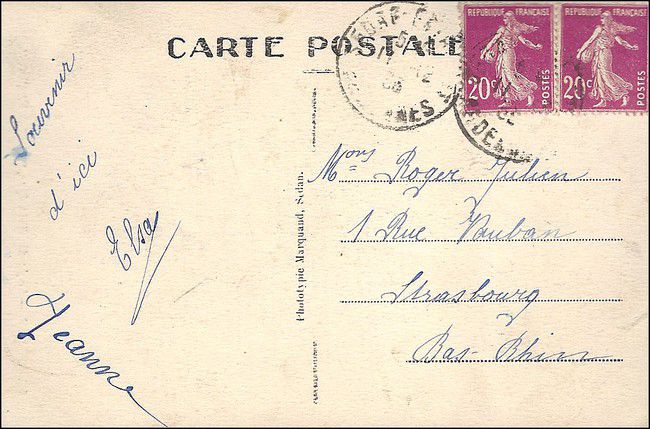 CARTE POSTALE
REPUBLIQUE FRANÇAISE
20c
POSTES
REPUBLIQUE FRANÇAISE
20c
POSTES
Souvenir
d'ici
Elsa
Jeanne
Phototypie Marquand, Sedan.
Mons Roger Julien
1 Rue Vauban
Strasbourg
Bas-Rhin